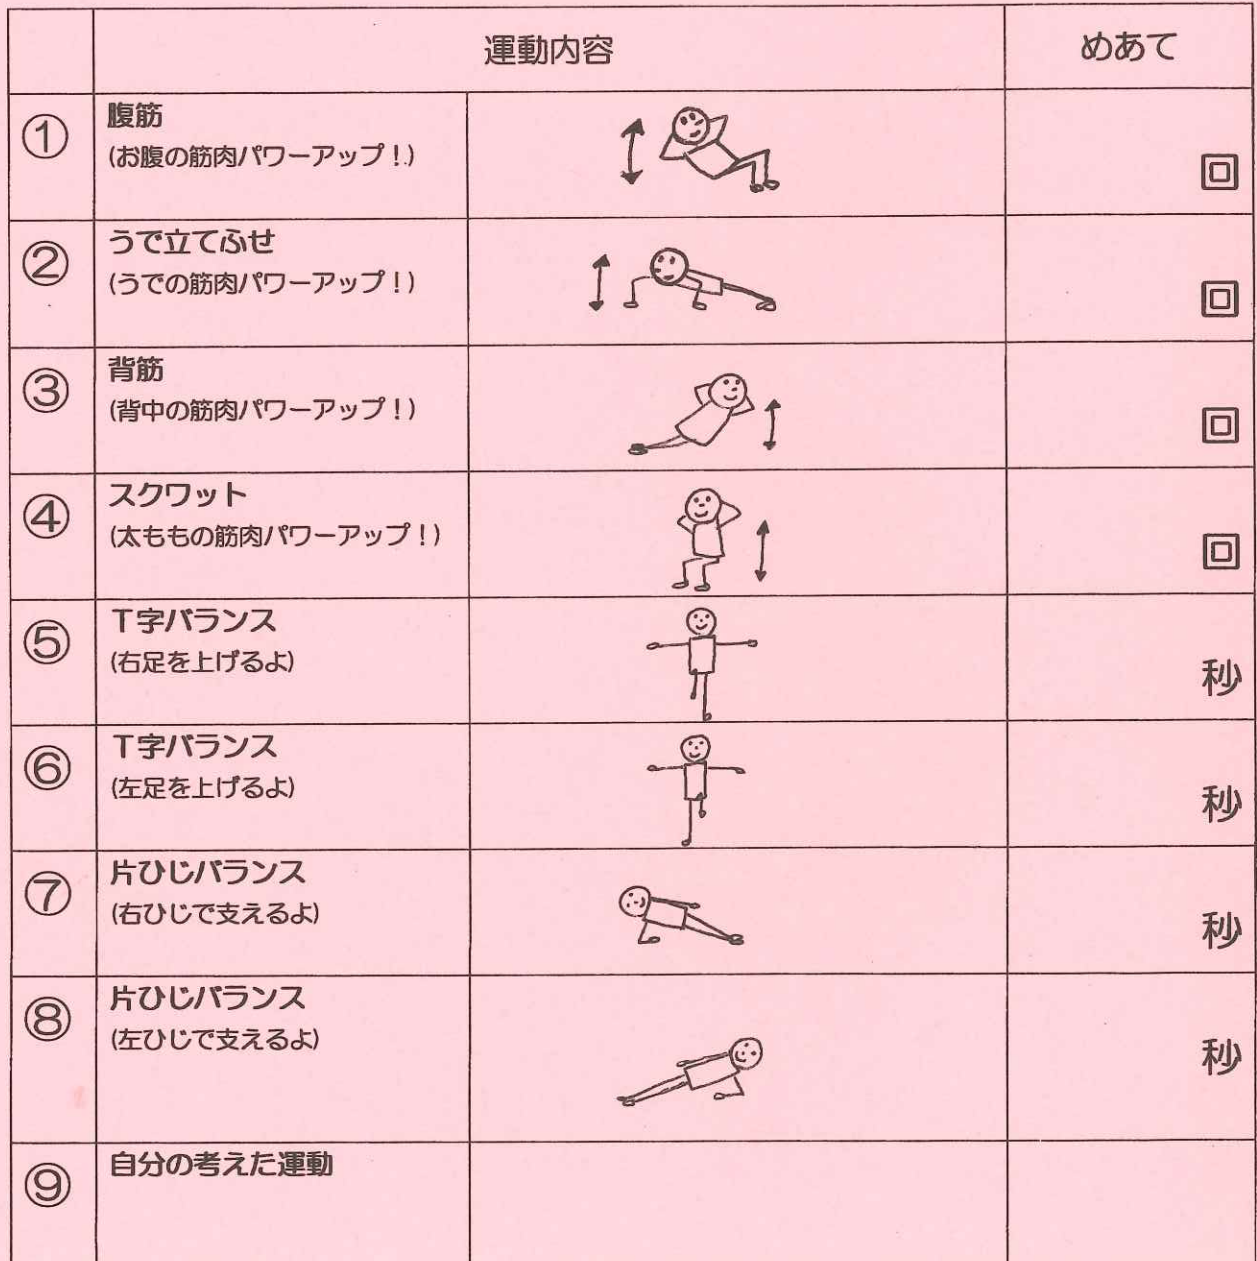 運動内容 めあて
① 腹筋
(お腹の筋肉パワーアップ！)
回
② うで立てふせ
(うでの筋肉パワーアップ！)
回
③ 背筋
(背中の筋肉パワーアップ！)
回
④ スクワット
(太ももの筋肉パワーアップ！)
回
⑤ T字バランス
(右足を上げるよ)
秒
⑥ T字バランス
(左足を上げるよ)
秒
⑦ 片ひじバランス
(右ひじで支えるよ)
秒
⑧ 片ひじバランス
(左ひじで支えるよ)
秒
⑨ 自分の考えた運動